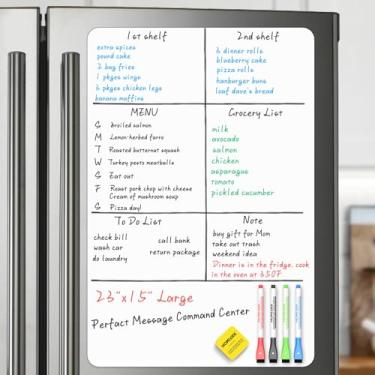 1st shelf
extra spices
pound cake
2 bag fries
1 pkges wings
6 pkges chicken legs
banana moffins
2nd shelf
6 dinner rolls
blueberry cake
pizza rolls
hamburger buns
loaf dave's bread
MENU
S broiled salmon
M Lemon-herbed farro
T Roasted butternut squash
W Turkey pesto meatballs
S Eat out
F Roast pork chop with cheese
Cream of mushroom soup
S Pizza day!
Grocery List
milk
avocado
salmon
chicken
asparague
tomato
pickled cucumber
To Do List
check bill
wash car
do laundry
call bank
return package
Note
buy gift for Mom
take out trash
weekend idea
Dinner is in the fridge, cook
in the oven at 350F
23"x15" Large
Perfact Message Command Center